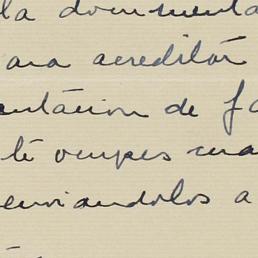 la documenta
ara acreditár
entácion de fa
te ocupes cua
enviandolos a